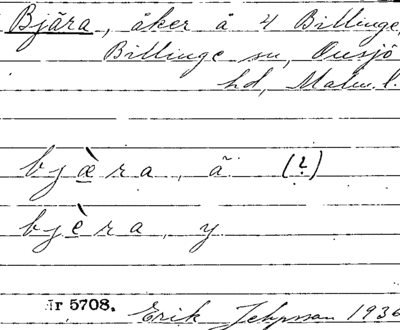 Bjära, åker å 4 Billinge,
Billinge sn, Onsjö
hd, Malm. l.
bjæ̀ra, ã (?)
bjèra, y
Nr 5708. Erik Jeppsson 1936